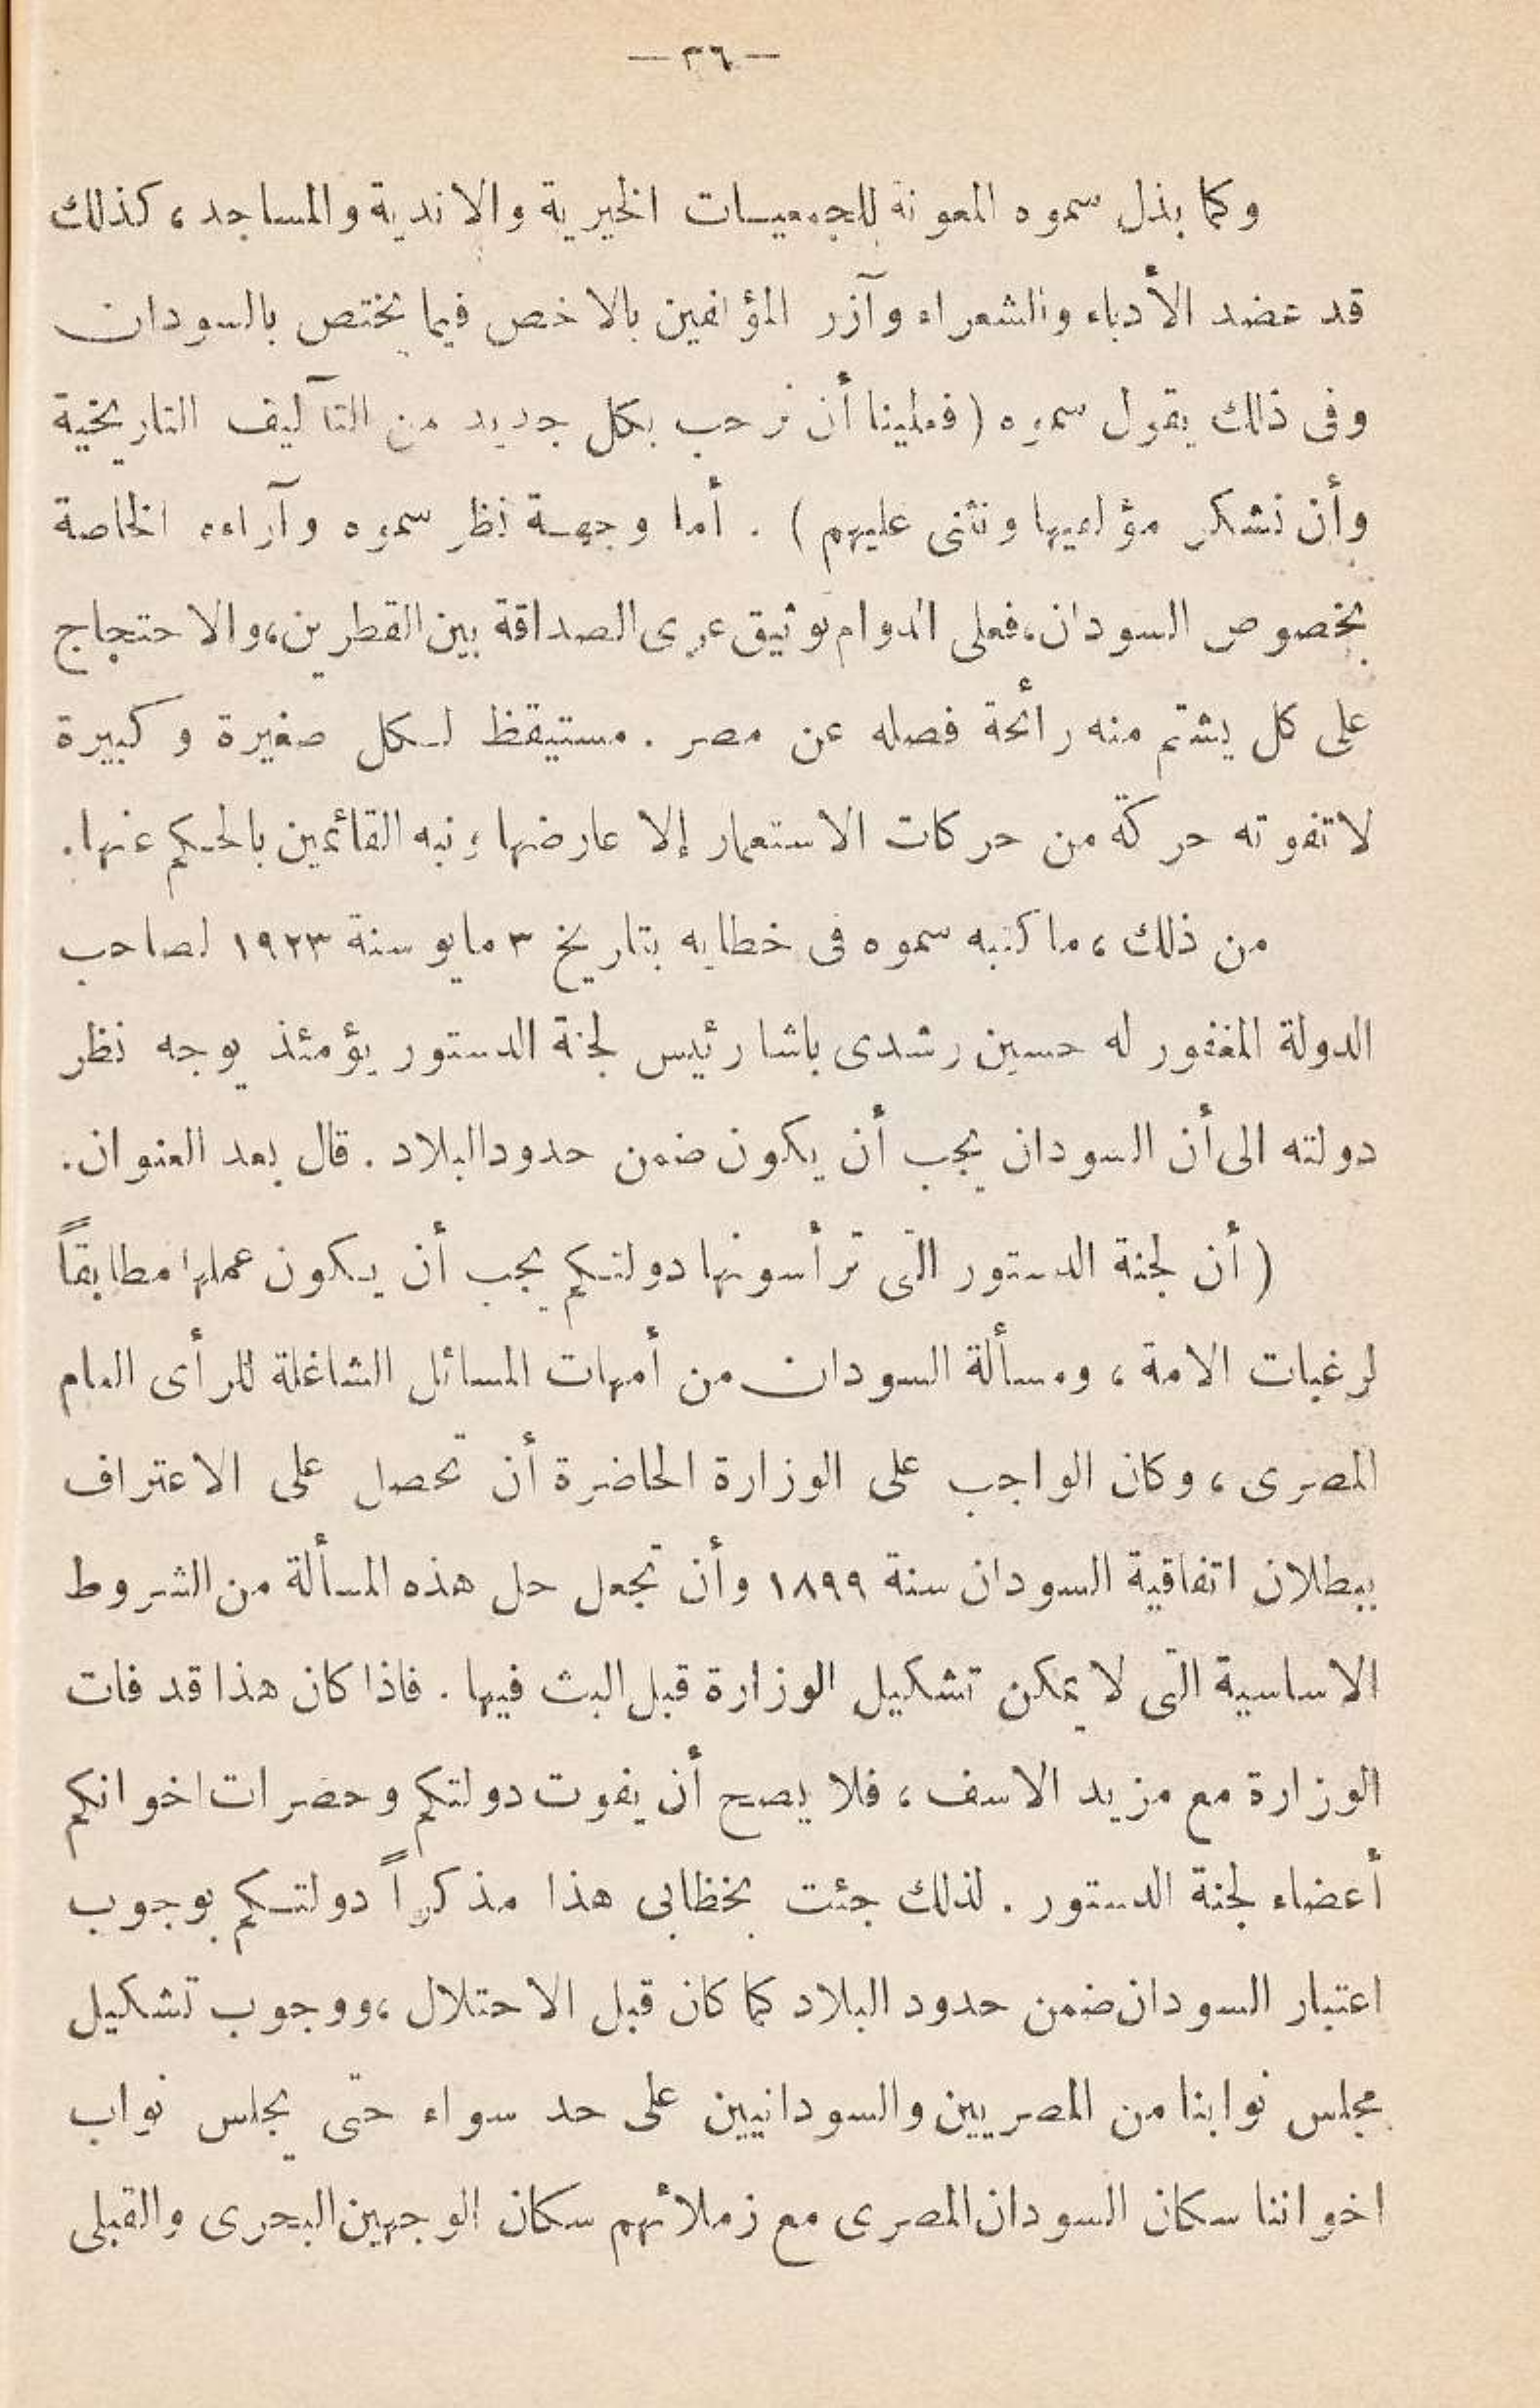 — ٣٦ —
وكما بذل سموه المعونة للجمعيات الخيرية والاندية والمساجد، كذلك
قد عضد الأدباء والشعراء وآزر المؤلفين بالاخص فيما يختص بالسودان
وفى ذلك يقول سموه (فعلينا أن نرحب بكل جديد من التآليف التاريخية
وأن نشكر مؤلفيها ونثنى عليهم) . أما وجهة نظر سموه وآراءه الخاصة
بخصوص السودان، فعلى الدوام توثيق عرى الصداقة بين القطرين، والاحتجاج
على كل يشتم منه رائحة فصله عن مصر . مستيقظ لكل صغيرة وكبيرة
لا تفوته حركة من حركات الاستعمار إلا عارضها ونبه القائمين بالحكم عنها.
من ذلك، ما كتبه سموه فى خطابه بتاريخ ٣ مايو سنة ١٩٢٣ لصاحب
الدولة المغفور له حسين رشدى باشا رئيس لجنة الدستور يؤمئذ يوجه نظر
دولته الى أن السودان يجب أن يكون ضمن حدود البلاد . قال بعد العنوان.
(أن لجنة الدستور التى ترأسونها دولتكم يجب أن يكون عملها مطابقاً
لرغبات الامة، ومسألة السودان من أمهات المسائل الشاغلة للرأى العام
المصرى، وكان الواجب على الوزارة الحاضرة أن تحصل على الاعتراف
ببطلان اتفاقية السودان سنة ١٨٩٩ وأن تجعل حل هذه المسألة من الشروط
الاساسية التى لا يمكن تشكيل الوزارة قبل البث فيها . فاذا كان هذا قد فات
الوزارة مع مزيد الاسف، فلا يصح أن يفوت دولتكم وحضرات اخوانكم
أعضاء لجنة الدستور . لذلك جئت بخظابى هذا مذكراً دولتكم بوجوب
اعتبار السودان ضمن حدود البلاد كما كان قبل الاحتلال، ووجوب تشكيل
مجلس نوابنا من المصريين والسودانيين على حد سواء حتى يجلس نواب
اخواننا سكان السودان المصرى مع زملائهم سكان الوجهين البحرى والقبلى